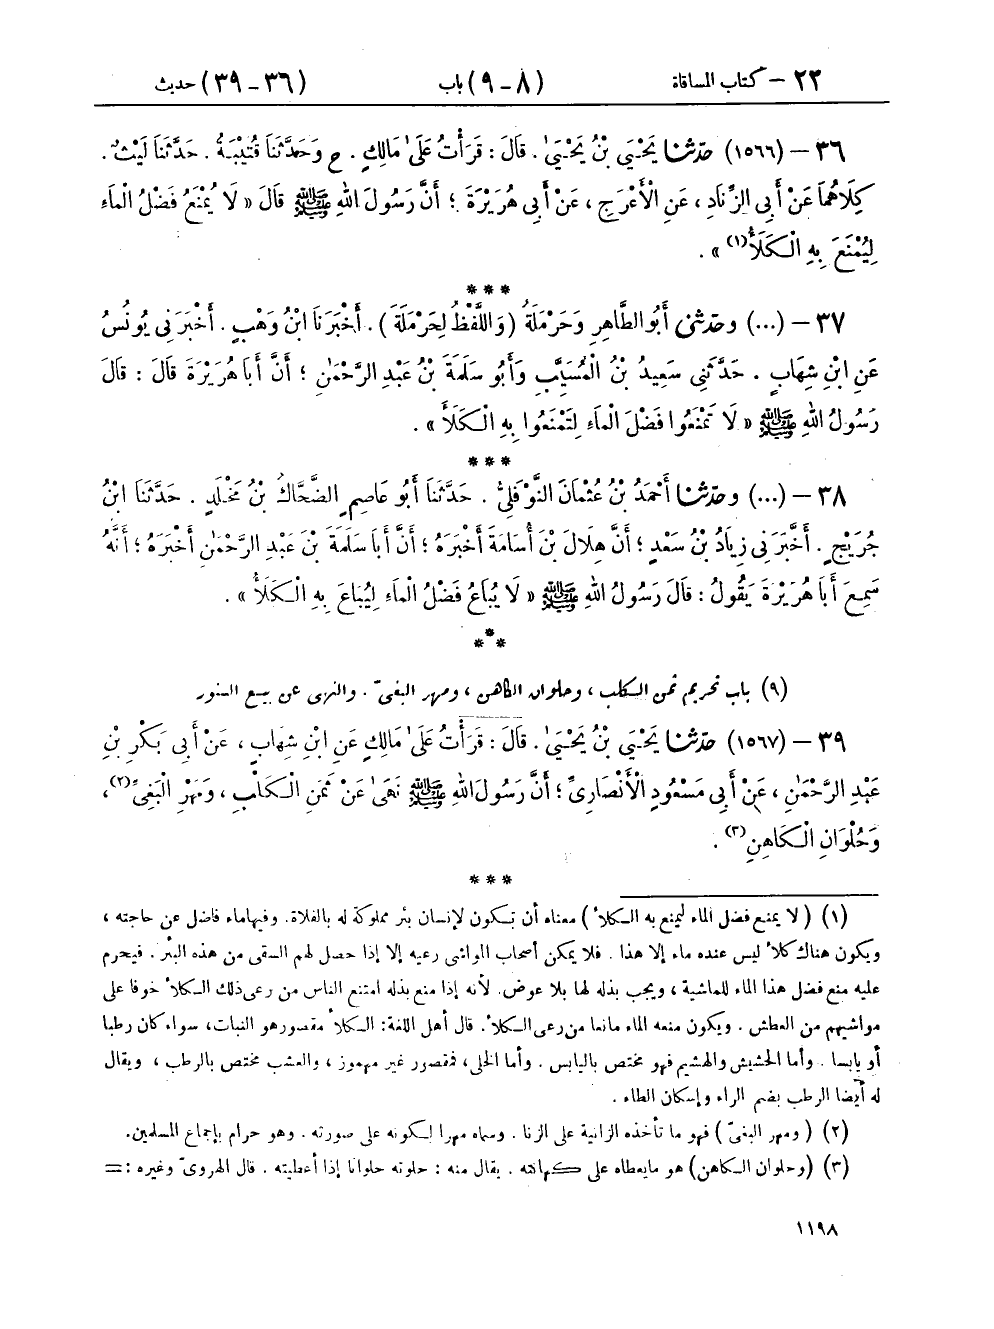 ٢٢ – كتاب المساقاة (٨ – ٩) باب (٣٦ – ٣٩) حديث
٣٦ – (١٥٦٦) حدّثنا يَحْيَىٰ بْنُ يَحْيَىٰ . قَالَ : قَرَأْتُ عَلَىٰ مَالِكٍ . ح وَحَدَّثَنَا قُتَيْبَةُ . حَدَّثَنَا لَيْثٌ .
كِلَاهُمَا عَنْ أَبِي الزِّنَادِ ، عَنِ الْأَعْرَجِ ، عَنْ أَبِي هُرَيْرَةَ ؛ أَنَّ رَسُولَ اللهِ ﷺ قَالَ « لَا يُمْنَعُ فَضْلُ الْمَاءِ
لِيُمْنَعَ بِهِ الْكَلَأُ(١) » .
* * *
٣٧ – (...) وحدّثنى أَبُو الطَّاهِرِ وَحَرْمَلَةُ (وَاللَّفْظُ لِحَرْمَلَةَ) . أَخْبَرَنَا ابْنُ وَهْبٍ . أَخْبَرَنِي يُونُسُ
عَنِ ابْنِ شِهَابٍ . حَدَّثَنِي سَعِيدُ بْنُ الْمُسَيَّبِ وَأَبُو سَلَمَةَ بْنُ عَبْدِ الرَّحْمَٰنِ ؛ أَنَّ أَبَا هُرَيْرَةَ قَالَ : قَالَ
رَسُولُ اللهِ ﷺ « لَا تَمْنَعُوا فَضْلَ الْمَاءِ لِتَمْنَعُوا بِهِ الْكَلَأَ » .
* * *
٣٨ – (...) وحدّثنا أَحْمَدُ بْنُ عُثْمَانَ النَّوْفَلِيُّ . حَدَّثَنَا أَبُو عَاصِمٍ الضَّحَّاكُ بْنُ مَخْلَدٍ . حَدَّثَنَا ابْنُ
جُرَيْجٍ . أَخْبَرَنِي زِيَادُ بْنُ سَعْدٍ ؛ أَنَّ هِلَالَ بْنَ أُسَامَةَ أَخْبَرَهُ ؛ أَنَّ أَبَا سَلَمَةَ بْنَ عَبْدِ الرَّحْمَٰنِ أَخْبَرَهُ ؛ أَنَّهُ
سَمِعَ أَبَا هُرَيْرَةَ يَقُولُ : قَالَ رَسُولُ اللهِ ﷺ « لَا يُبَاعُ فَضْلُ الْمَاءِ لِيُبَاعَ بِهِ الْكَلَأُ » .
* * *
(٩) باب تحريم ثمن الكلب ، وحلوان الكاهن ، ومهر البغىّ . والنهى عن بيع السنور
٣٩ – (١٥٦٧) حدّثنا يَحْيَىٰ بْنُ يَحْيَىٰ . قَالَ : قَرَأْتُ عَلَىٰ مَالِكٍ عَنِ ابْنِ شِهَابٍ ، عَنْ أَبِي بَكْرِ بْنِ
عَبْدِ الرَّحْمَٰنِ ، عَنْ أَبِي مَسْعُودٍ الْأَنْصَارِيِّ ؛ أَنَّ رَسُولَ اللهِ ﷺ نَهَىٰ عَنْ ثَمَنِ الْكَلْبِ ، وَمَهْرِ الْبَغِيِّ(٢) ،
وَحُلْوَانِ الْكَاهِنِ(٣) .
* * *
(١) (لا يمنع فضل الماء ليمنع به الكلأ) معناه أن تكون لإنسان بئر مملوكة له بالفلاة . وفيها ماء فاضل عن حاجته ،
ويكون هناك كلأ ليس عنده ماء إلا هذا . فلا يمكن أصحاب المواشى رعيه إلا إذا حصل لهم السقى من هذه البئر . فيحرم
عليه منع فضل هذا الماء للماشية ، ويجب بذله لها بلا عوض . لأنه إذا منع بذله امتنع الناس من رعى ذلك الكلأ خوفا على
مواشيهم من العطش . ويكون منعه الماء مانعا من رعى الكلأ . قال أهل اللغة : الكلأ مقصور هو النبات ، سواء كان رطبا
أو يابسا . وأما الحشيش والهشيم فهو مختص باليابس . وأما الخلى ، فمقصور غير مهموز ، والعشب مختص بالرطب ، ويقال
له أيضا الرطب بضم الراء وإسكان الطاء .
(٢) ( ومهر البغىّ ) فهو ما تأخذه الزانية على الزنا . وسماه مهرا لكونه على صورته . وهو حرام بإجماع المسلمين .
(٣) (وحلوان الكاهن) هو ما يعطاه على كهانته . يقال منه : حلوته حلوانا إذا أعطيته . قال الهروىّ وغيره : =
١١٩٨